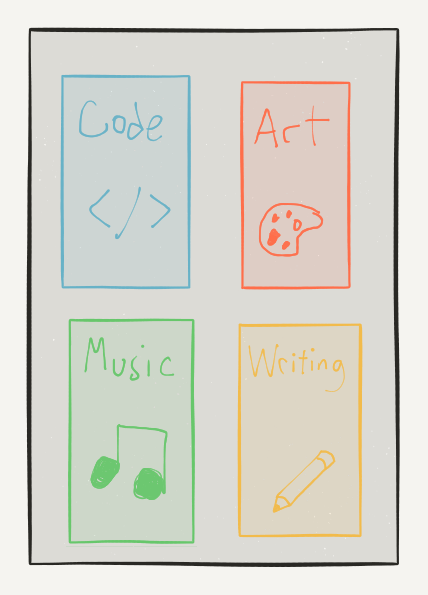 Code
Art
</>
Music
Writing